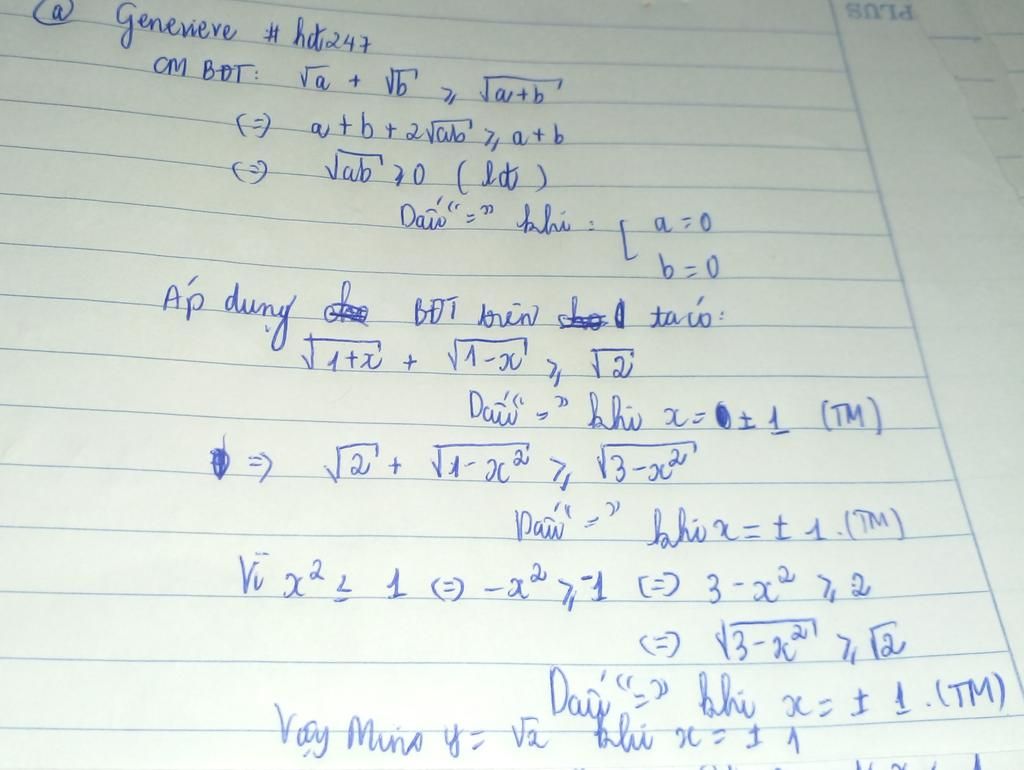 PLUS
(a) Genevieve # hdt247
CM BĐT: √a + √b ≥ √(a+b)
(=) a + b + 2√(ab) ≥ a + b
(=) √(ab) ≥ 0 (lđ)
Dấu "=" khi: [ a = 0
b = 0
Áp dụng BĐT trên ta có:
√(1+x) + √(1-x) ≥ √2
Dấu "=" khi x = ± 1 (TM)
=> √2 + √(1-x²) ≥ √(3-x²)
Dấu "=" khi x = ± 1. (TM)
Vì x² ≤ 1 (=) -x² ≥ -1 (=) 3 - x² ≥ 2
(=) √(3-x²) ≥ √2
Dấu "=" khi x = ± 1. (TM)
Vậy Min y = √2 khi x = ± 1